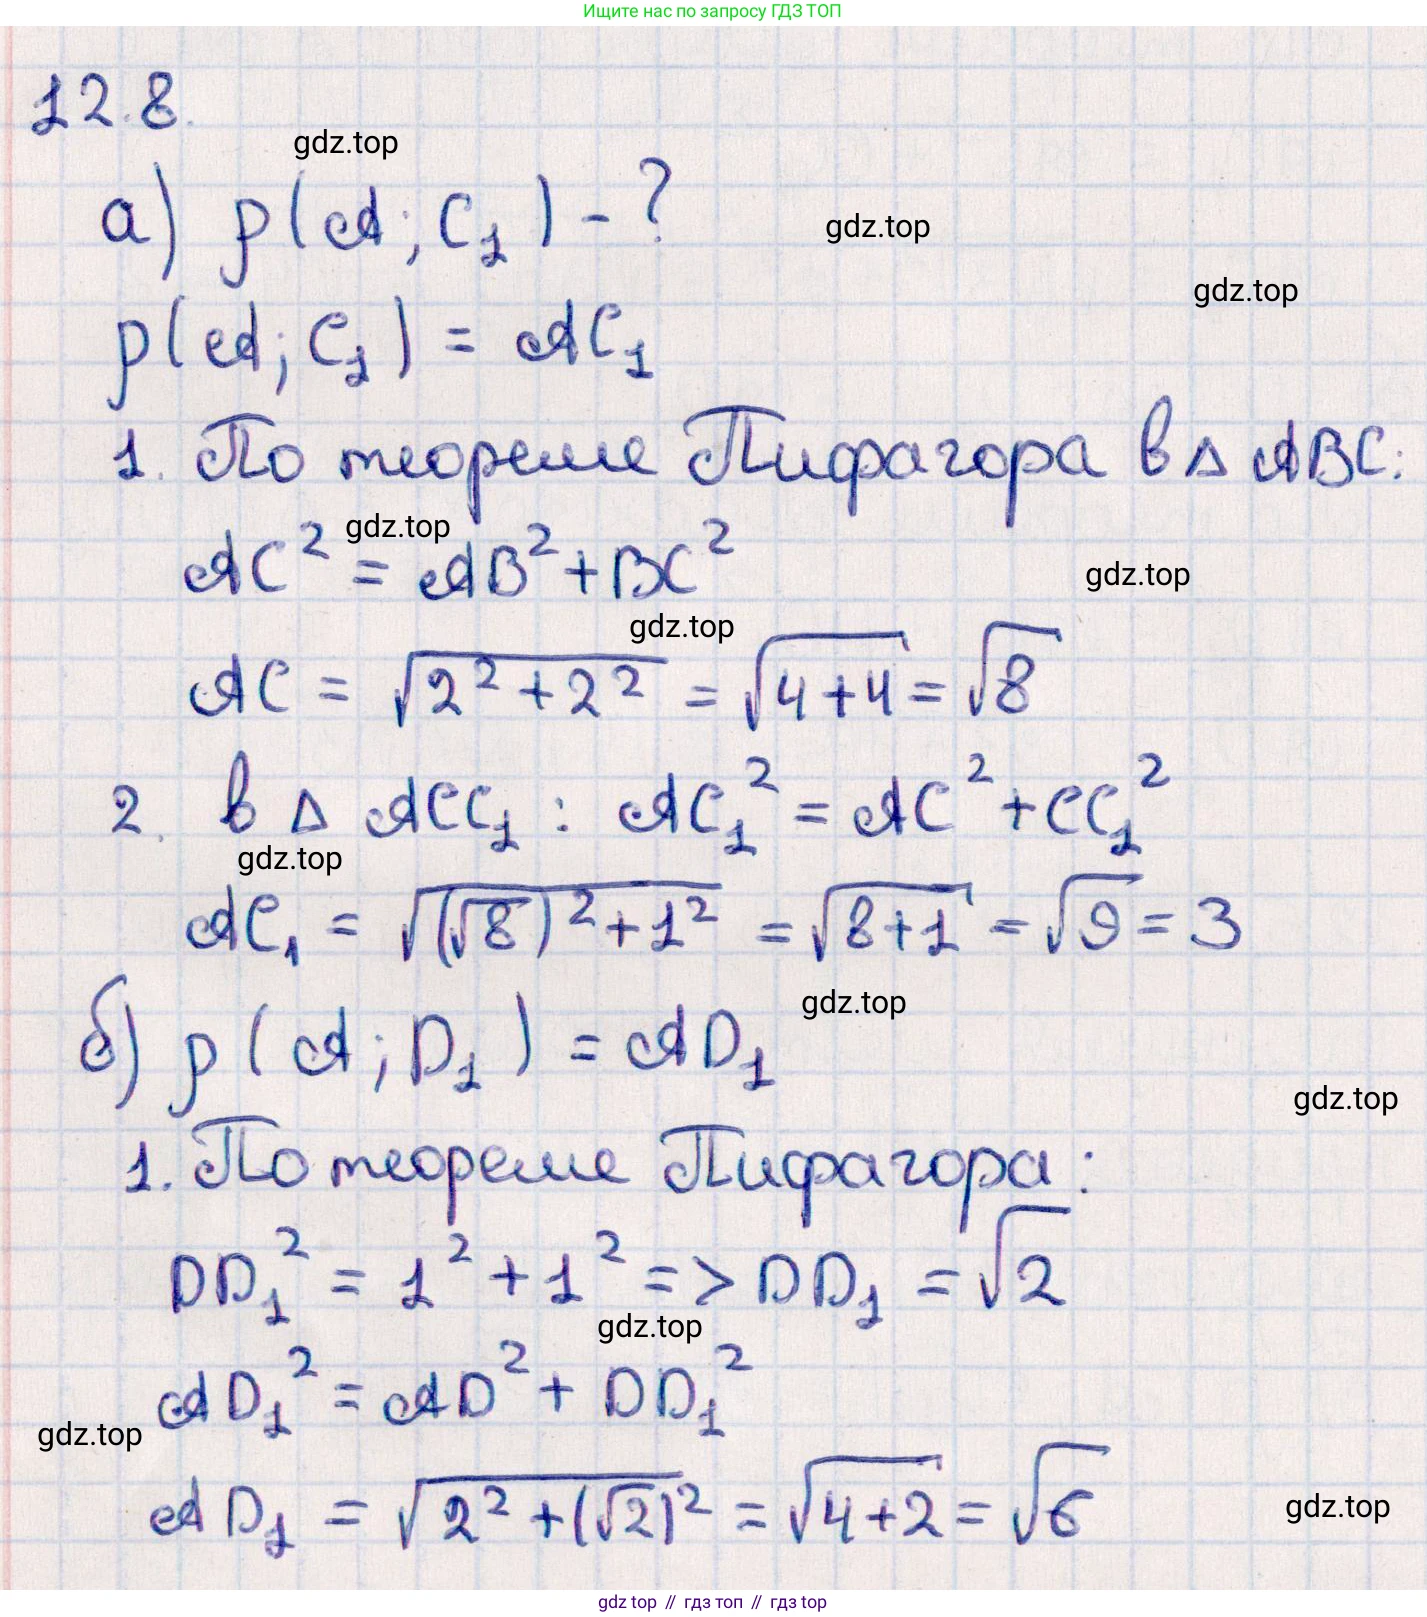 Ищите нас по запросу ГДЗ ТОП
12.8.
gdz.top
а) p(A; C₁) - ?
gdz.top
gdz.top
p(A; C₁) = AC₁
1. По теореме Пифагора в Δ ABC:
gdz.top
AC² = AB² + BC²
gdz.top
gdz.top
AC = √(2² + 2²) = √(4+4) = √8
2. в Δ ACC₁ : AC₁² = AC² + CC₁²
gdz.top
AC₁ = √((√8)² + 1²) = √(8+1) = √9 = 3
gdz.top
б) p(A; D₁) = AD₁
gdz.top
1. По теореме Пифагора:
DD₁² = 1² + 1² => DD₁ = √2
gdz.top
AD₁² = AD² + DD₁²
gdz.top
AD₁ = √(2² + (√2)²) = √(4+2) = √6
gdz.top
gdz.top // гдз топ // гдз top